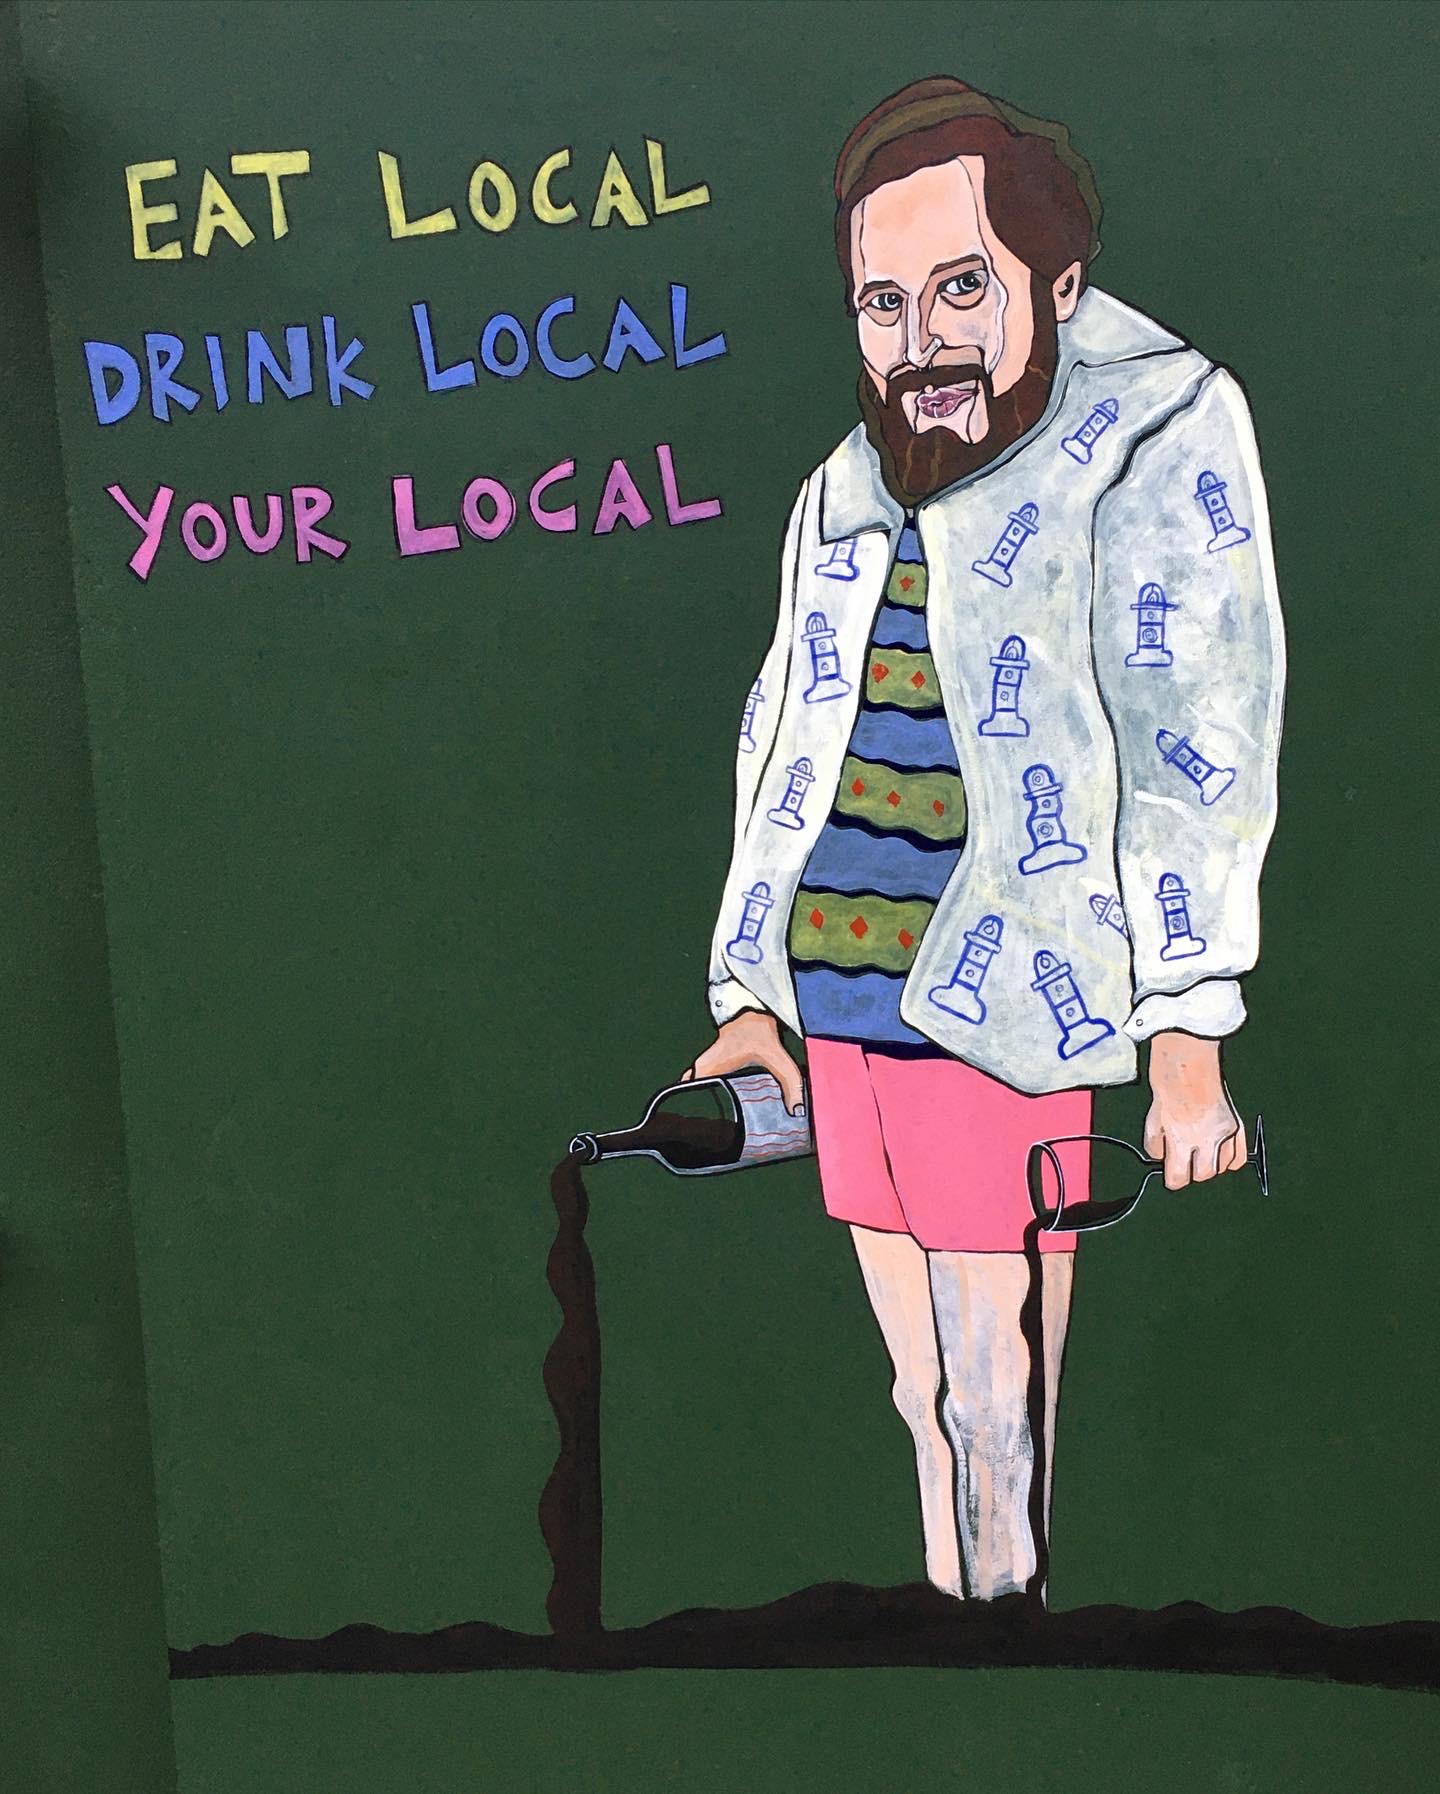 EAT LOCAL
DRINK LOCAL
YOUR LOCAL